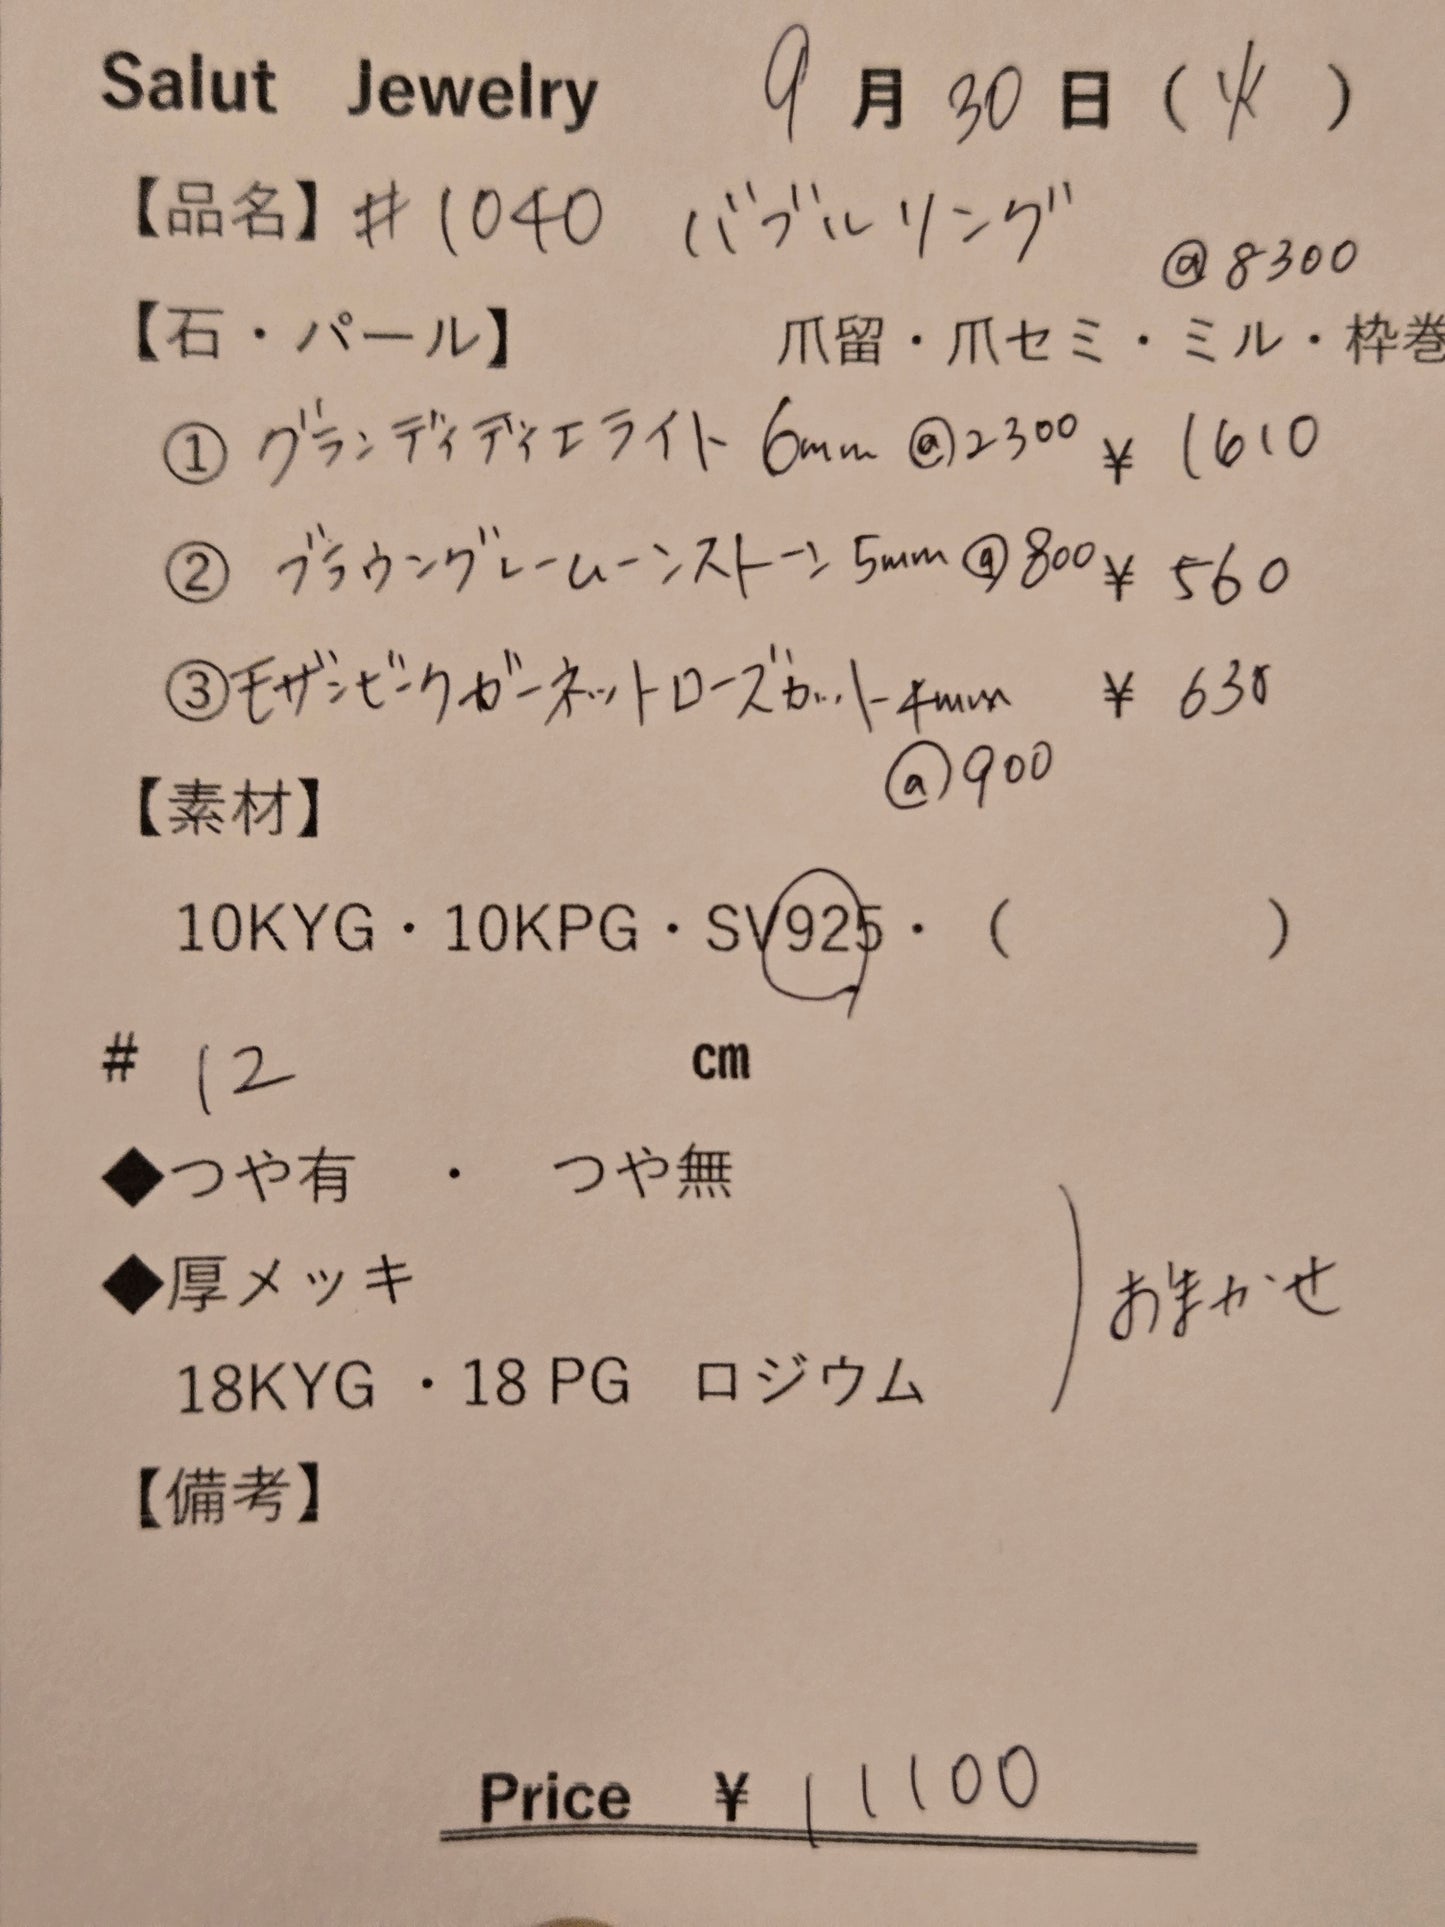 Salut Jewelry 9月30日(火)
【品名】#1040 バブルリング
@8300
【石・パール】 爪留・爪セミ・ミル・枠巻
① グランディディエライト 6mm @2300 ¥ 1610
② ブラウングレームーンストーン 5mm @800 ¥ 560
③モザンビークガーネットローズカット4mm ¥ 630
@900
【素材】
10KYG・10KPG・SV925・( )
# 12 cm
◆つや有 ・ つや無
◆厚メッキ
おまかせ
18KYG ・18 PG ロジウム
【備考】
Price ¥ 11100